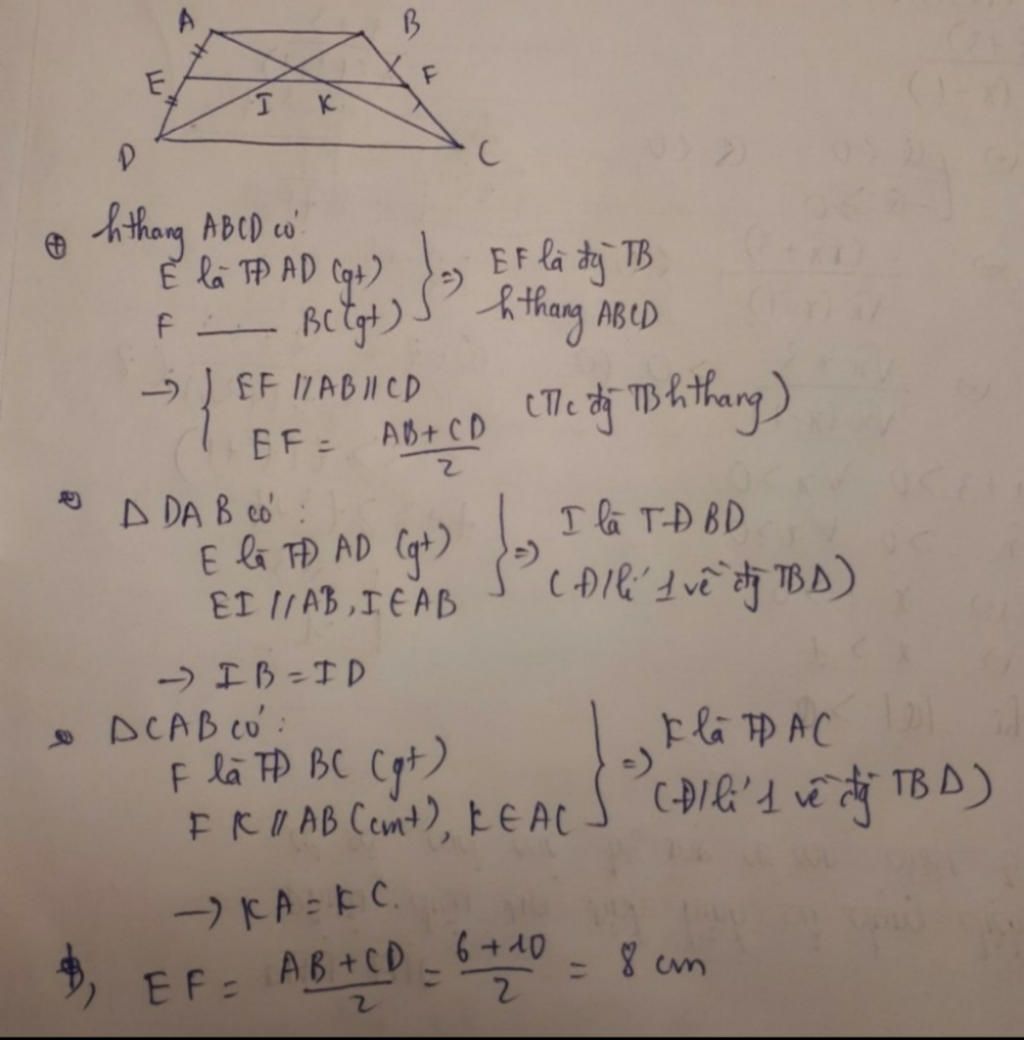 A B
E F
I K
D C
⊕ hthang ABCD có
E là TĐ AD (gt)
F —— BC (gt)
} => EF là đg TB
hthang ABCD
→ { EF // AB // CD
EF = AB + CD / 2
(T/c đg TB hthang)
Δ DAB có :
E là TĐ AD (gt)
EI // AB, I ∈ AB
} => I là TĐ BD
(Đ/lí 1 về đg TB Δ)
→ IB = ID
Δ CAB có :
F là TĐ BC (gt)
FK // AB (cmt), K ∈ AC
} => K là TĐ AC
(Đ/lí 1 về đg TB Δ)
→ KA = KC.
b, EF = AB + CD / 2 = 6 + 10 / 2 = 8 cm